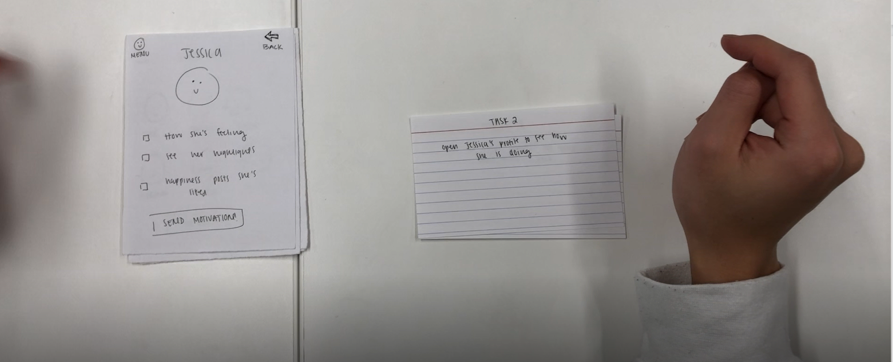 MENU
Jessica
BACK
How she's feeling
see her highlights
happiness posts she's
liked
SEND MOTIVATION
TASK 2
open Jessica's profile to see how
she is doing